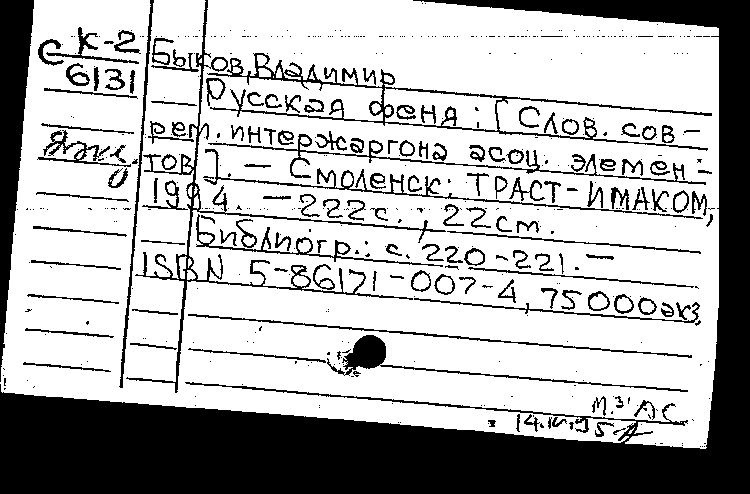 С К-2
6131
Быков, Владимир
Русская феня : [Слов. сов-
рем. интержаргона асоц. элемен-
тов]. — Смоленск: ТРАСТ-ИМАКОМ,
1994. — 222с. ; 22см.
Библиогр.: с. 220-221. —
ISBN 5-86171-007-4, 75000экз.